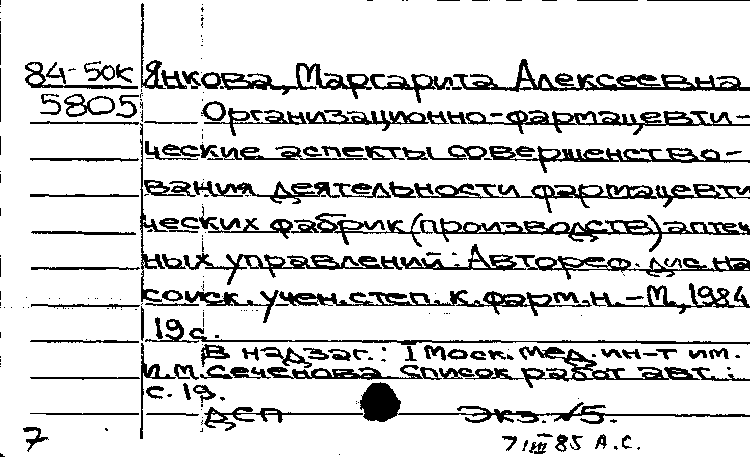 84-50к Янкова, Маргарита Алексеевна
5805 Организационно-фармацевти-
ческие аспекты совершенство-
вания деятельности фармацевти
ческих фабрик (производств) аптеч
ных управлений: Автореф. дис на
соиск. учен. степ. к. фарм. н. - М., 1984
19 с.
В надзаг.: I Моск. мед. ин-т им.
И.М. Сеченова. Список работ авт.:
с. 19.
ДСП Экз. №5.
7 7 III 85 А.С.